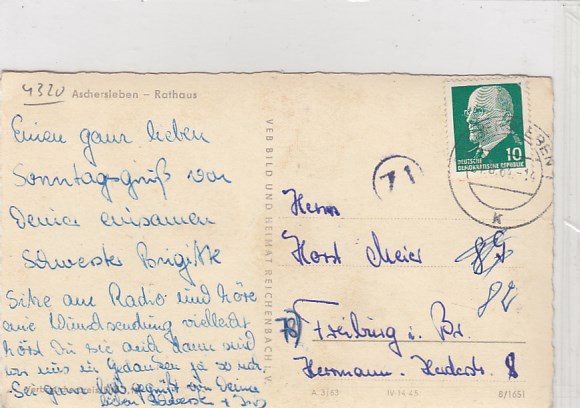 4320
Aschersleben – Rathaus
Einen ganz lieben
Sonntagsgruß von
Deiner einsamen
Schwester Brigitte
Sitze am Radio und höre
eine Wunschsendung vielleicht
hörst Du sie auch dann sind
wir uns in Gedanken ja so nah.
Sei ganz lieb gegrüßt von Deiner
VEB BILD UND HEIMAT REICHENBACH I. V.
10
DEUTSCHE
DEMOKRATISCHE REPUBLIK
LEBEN
K
71
Herrn
Horst Meier
82
78 Freiburg i. Br.
Hermann-Herderstr. 8
A 3/63 IV-14-45 8/1651